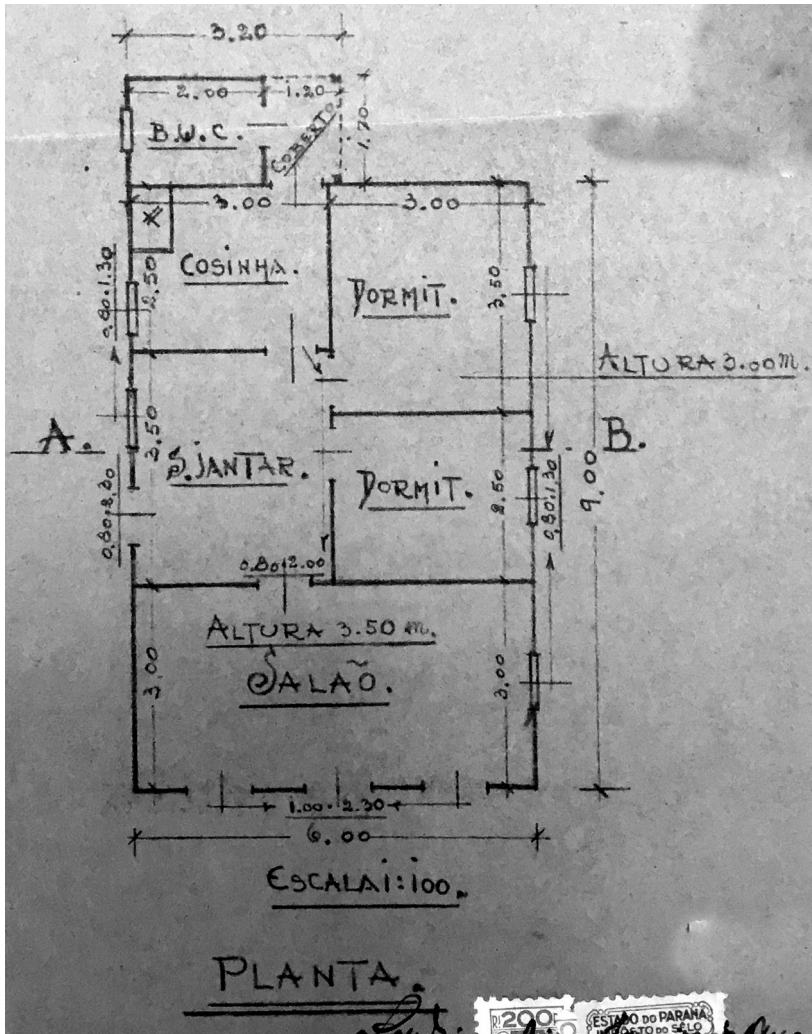 3.20
2.00 1.20
B.W.C.
COBERTO
1.70
3.00 3.00
COSINHA.
2.50
0,80·1.30
DORMIT.
3.50
ALTURA 3.00m.
A. B.
3.50
S. JANTAR.
DORMIT.
2.50
0,80·1.30
9.00
0,80·2,30
0.80·2.00
ALTURA 3.50 m.
SALÃO.
3.00 3.00
1.00·2.30
6.00
ESCALA 1:100.
PLANTA.
200
ESTADO DO PARANÁ
IMPOSTO DO SÊLO